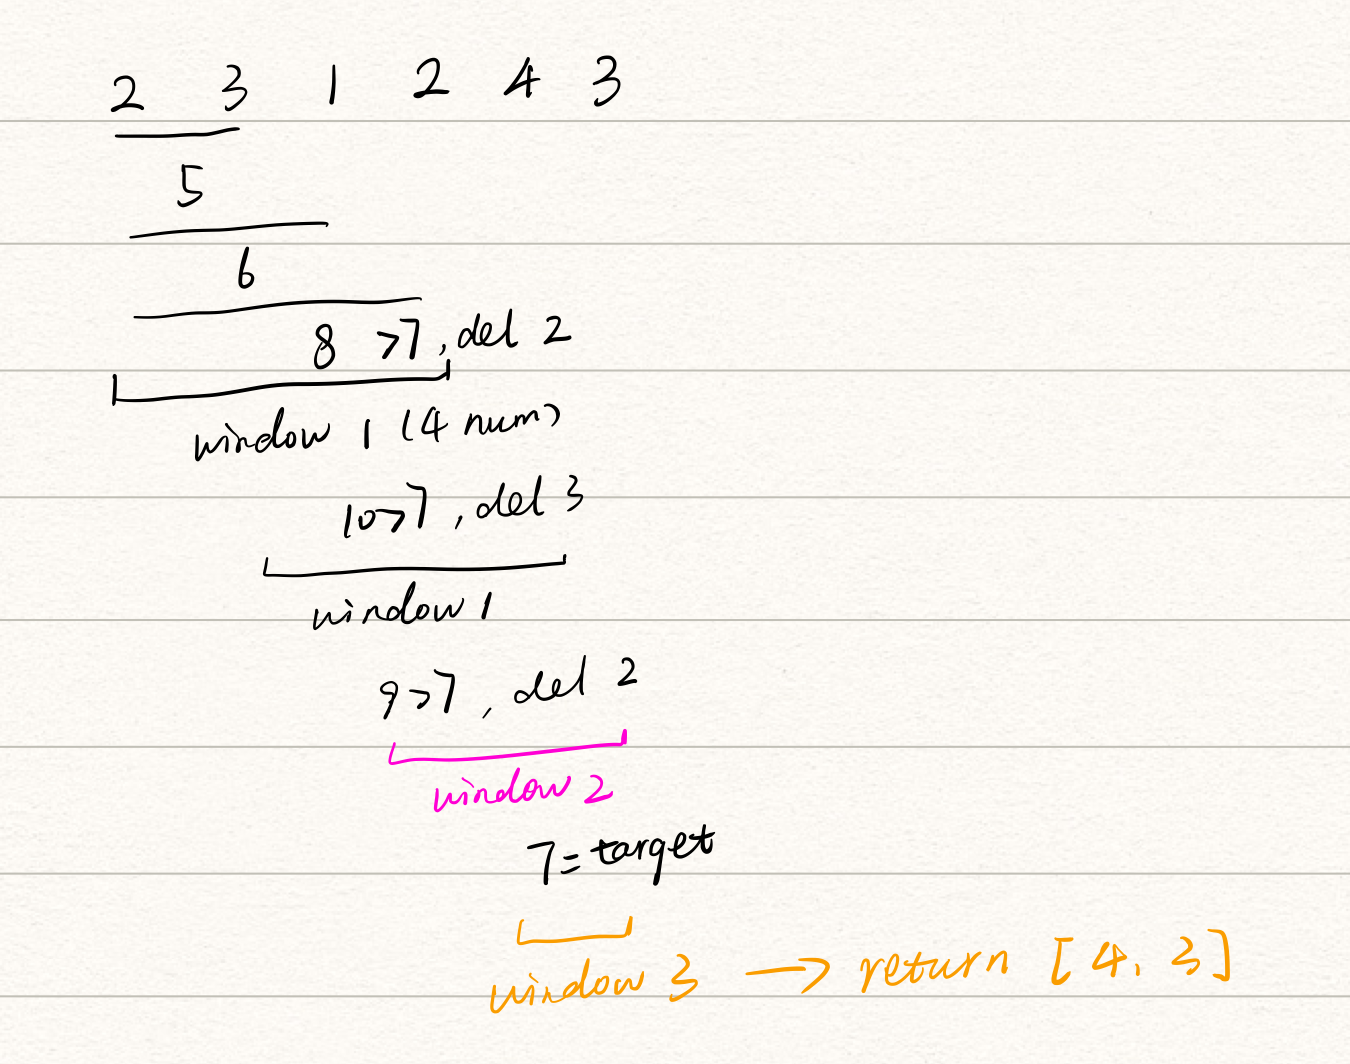 2 3 1 2 4 3
5
6
8 >7, del 2
window 1 (4 num)
10>7, del 3
window 1
9>7, del 2
window 2
7=target
window 3 → return [4, 3]